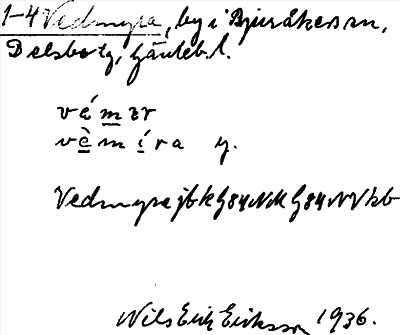 1-4 Vedmyra, by i Bjuråkers sn,
Delsbo tg, Gävleb. l.
vȩ́mzr
vèmíra y.
Vedmyra jbk G84NM G84NV kb
Nils Erik Eriksson 1936.